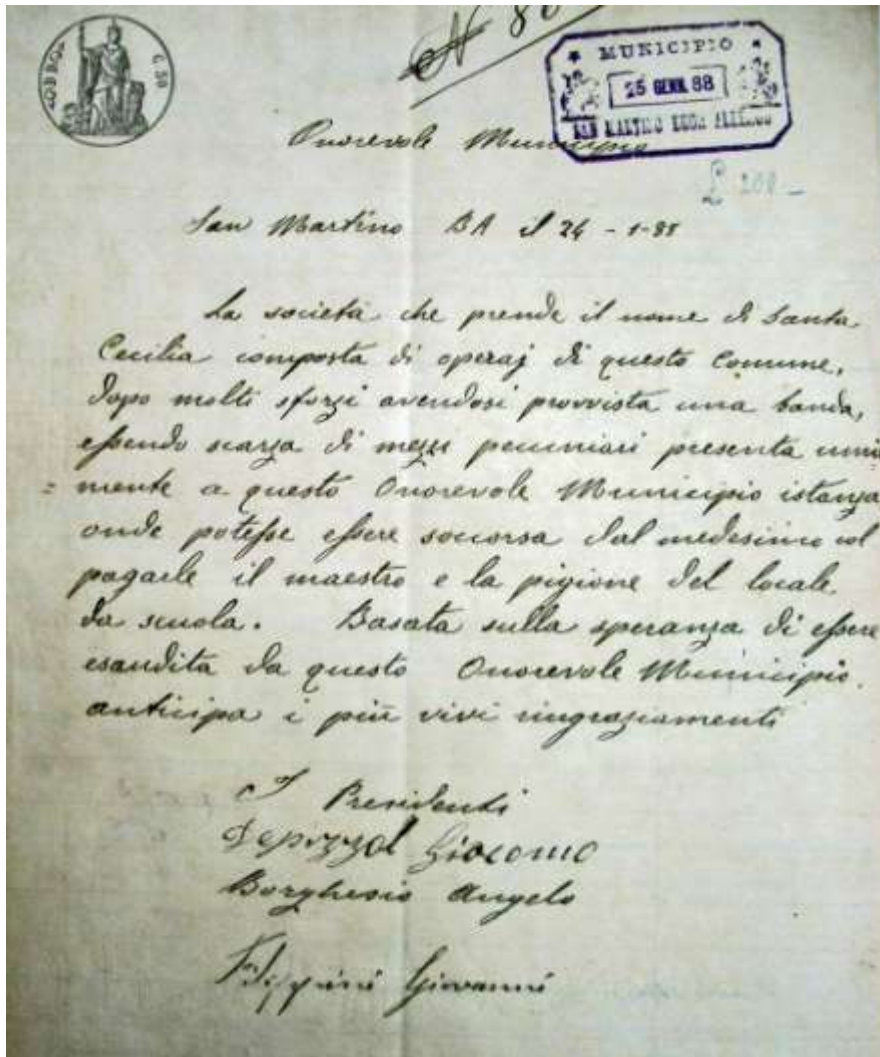 N 80
MUNICIPIO
25 GENN. 88
SAN MARTINO BUON ALBERGO
C. 50
Onorevole Municipio
£ 200 -
San Martino BA il 24 - 1 - 88
La società che prende il nome di Santa
Cecilia composta di operaj di questo Comune,
dopo molti sforzi avendosi provvista una banda,
essendo scarza di mezzi pecuniari presenta umil
= mente a questo Onorevole Municipio istanza
onde potesse essere soccorsa dal medesimo col
pagarle il maestro e la pigione del locale
da scuola. Basata sulla speranza di essere
esaudita da questo Onorevole Municipio
anticipa i più vivi ringraziamenti
I Presidenti
Giacomo
Borghesio Angelo
Filippini Giovanni